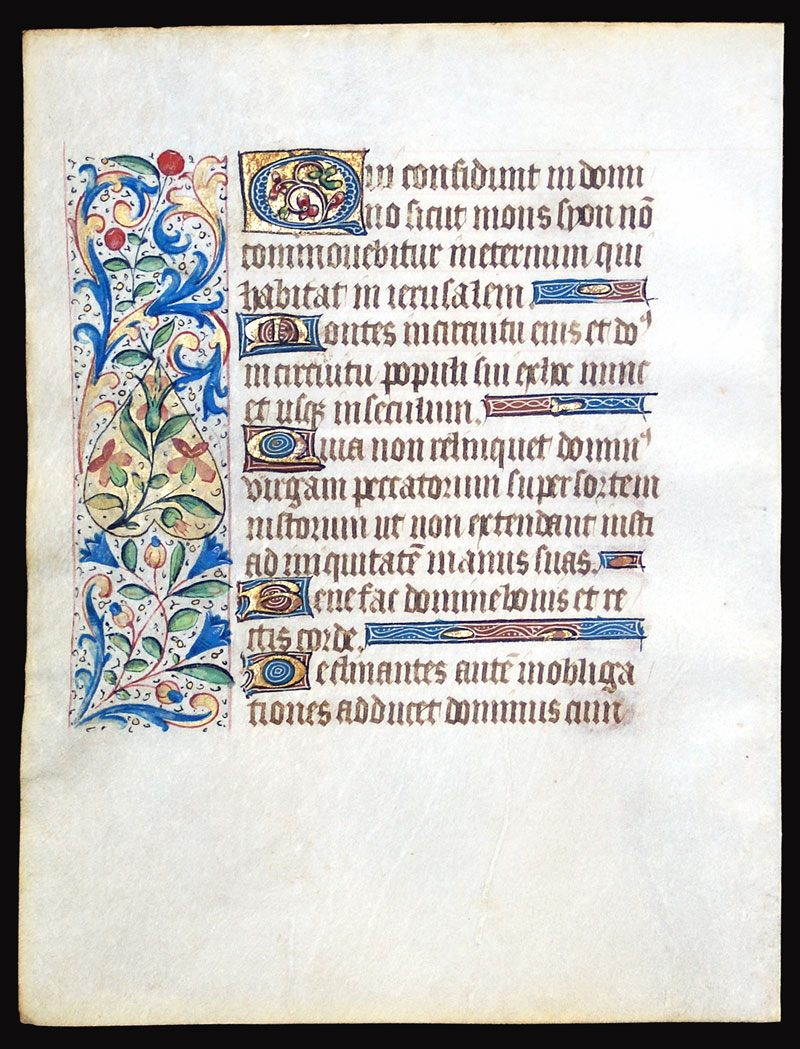 Qui confidunt in domi
no sicut mons syon nō
commovebitur ineternum qui
habitat in ierusalem
Montes incircuitu eius et doꝰ
incircuitu populi sui ex hoc nunc
et usqꝫ in seculum.
Quia non relinquet dominꝰ
virgam peccatorum super sortem
iustorum ut non extendant iusti
ad iniquitatē manus suas.
Bene fac domine bonis et re
ctis corde.
Declinantes autē inobliga
tiones adducet dominus cum